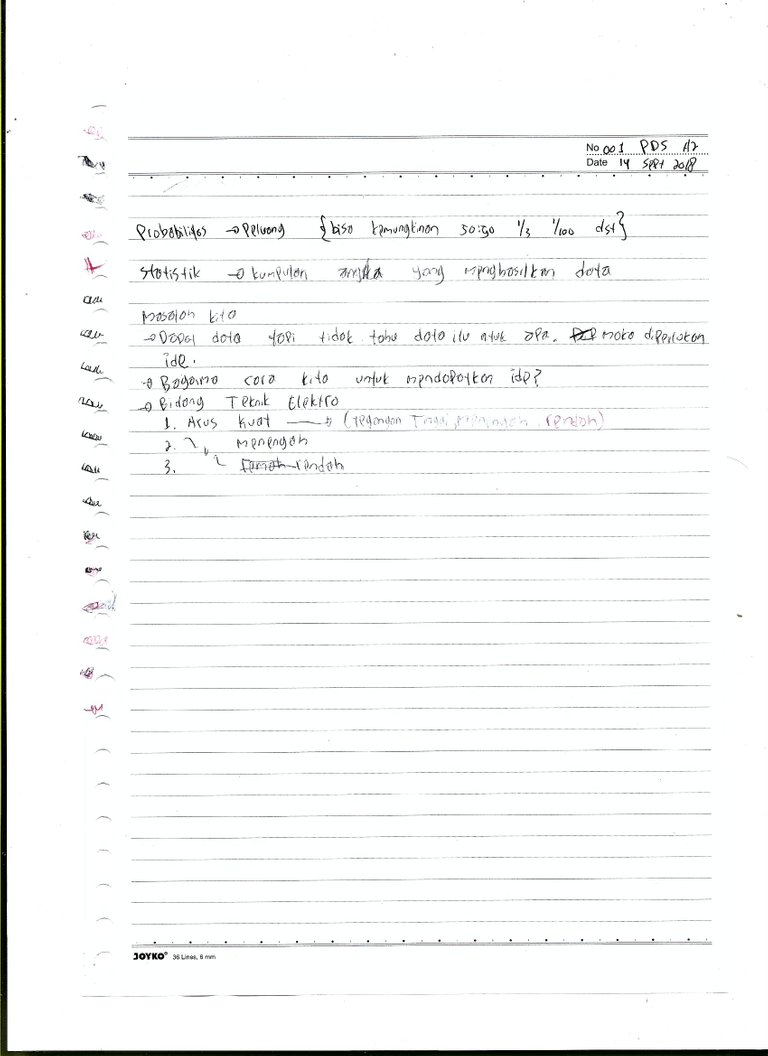 No 001 PDS A2
Date 14 Sept 2018
Probabilitas → Peluang {bisa kemungkinan 50:50 1/3 1/100 dst}
Statistik → kumpulan angka yang menghasilkan data
Masalah kita
→ Dapat data tapi tidak tahu data itu untuk apa. maka diperlukan
ide.
→ Bagaimana cara kita untuk mendapatkan ide?
→ Bidang Teknik Elektro
1. Arus Kuat → (Tegangan Tinggi, Menengah, rendah)
2. Menengah
3. rendah
JOYKO® 36 Lines, 6 mm